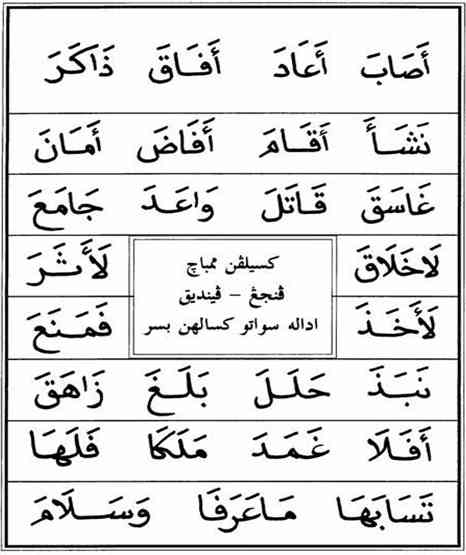 أَصَابَ أَعَادَ أَفَاقَ ذَاكَرَ
نَشَأَ أَقَامَ أَفَاضَ أَمَانَ
غَاسَقَ قَاتَلَ وَاعَدَ جَامَعَ
لَاخَلَاقَ لَأَثَرَ
كسيلڤن ممباچ
ڤنجڠ – ڤينديق
اداله سواتو كسالهن بسر
لَأَخَذَ فَمَنَعَ
نَبَذَ حَلَلَ بَلَغَ زَاهَقَ
أَفَلَا غَمَدَ مَلَكَا فَلَهَا
تَسَابَهَا مَاعَرَفَا وَسَلَامَ